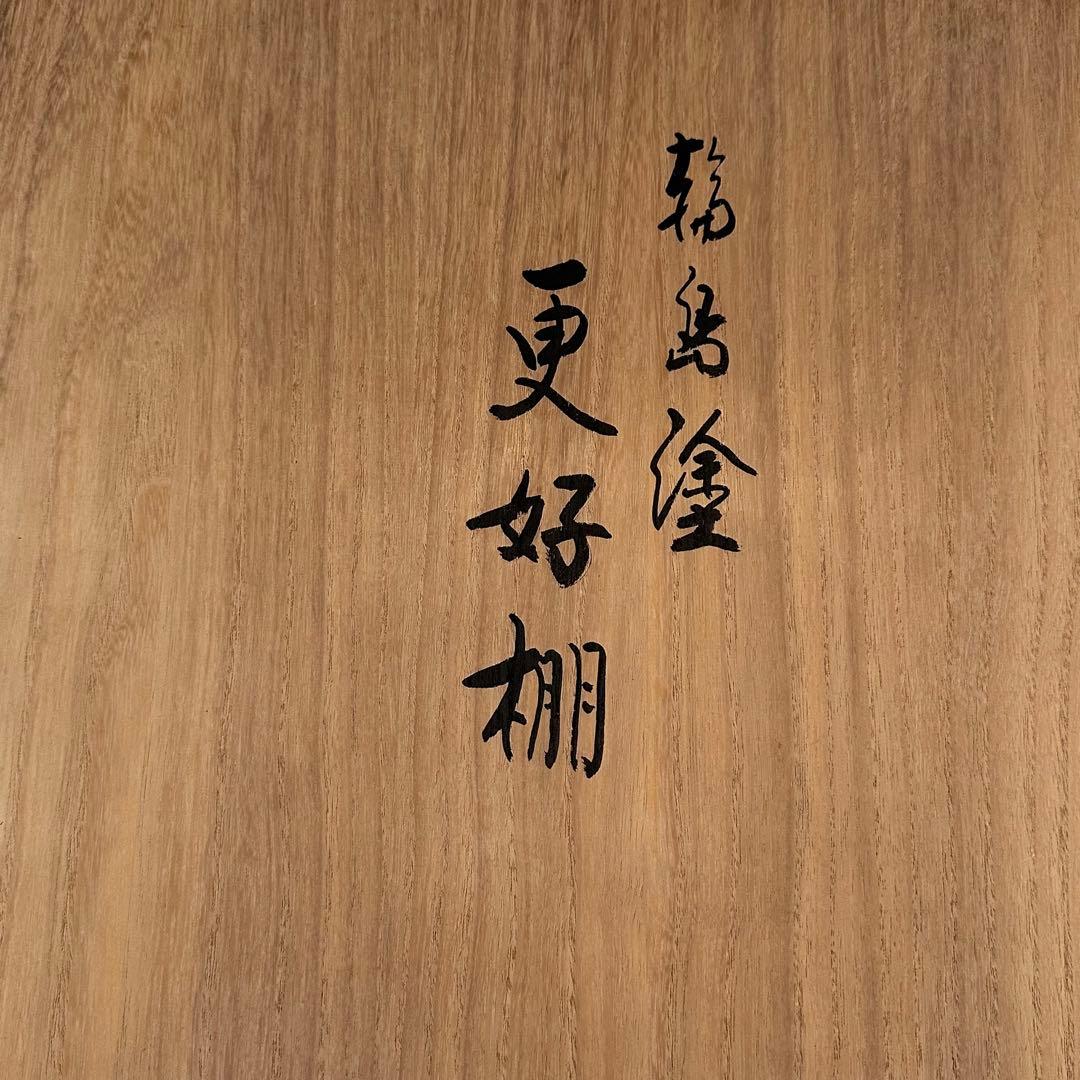 輪島塗
更好棚